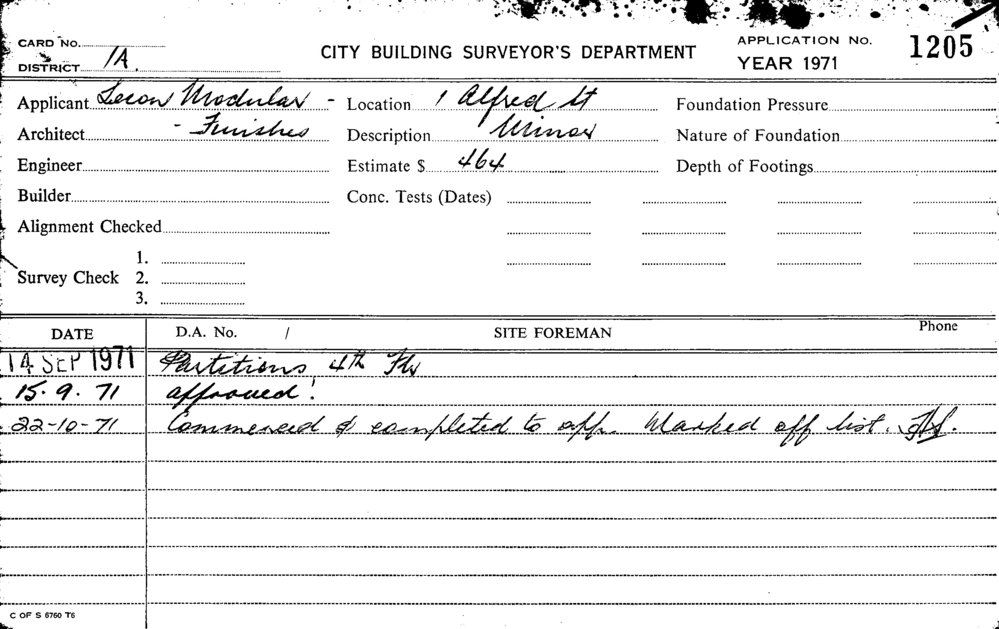 CARD No.
DISTRICT 1A.
CITY BUILDING SURVEYOR'S DEPARTMENT
APPLICATION No. 1205
YEAR 1971
Applicant Lecon Modular - Location 1 Alfred St Foundation Pressure
Architect - Finishes Description Minor Nature of Foundation
Engineer Estimate $ 464 Depth of Footings
Builder Conc. Tests (Dates)
Alignment Checked
1.
Survey Check 2.
3.
DATE D.A. No. / SITE FOREMAN Phone
14 SEP 1971 Partitions 4th Flr
15. 9. 71 approved!
22-10-71 Commenced & completed to app. Marked off list.
C OF S 6760 T6